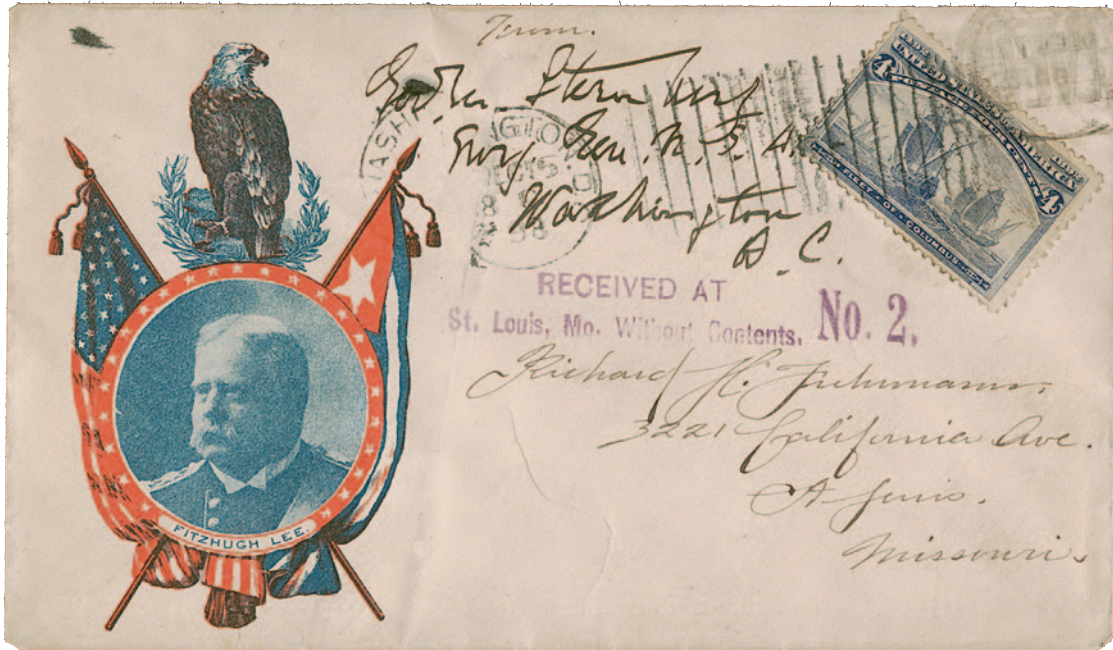 From.
Geo. M. Sternberg
Surg. Gen. U. S. A.
Washington
D. C.
WASHINGTON
UNITED STATES OF AMERICA
FLEET OF COLUMBUS
RECEIVED AT
St. Louis, Mo. Without Contents. No. 2.
Richard H. Fuhrmann,
3221 California Ave.
St Louis.
Missouri.
FITZHUGH LEE.